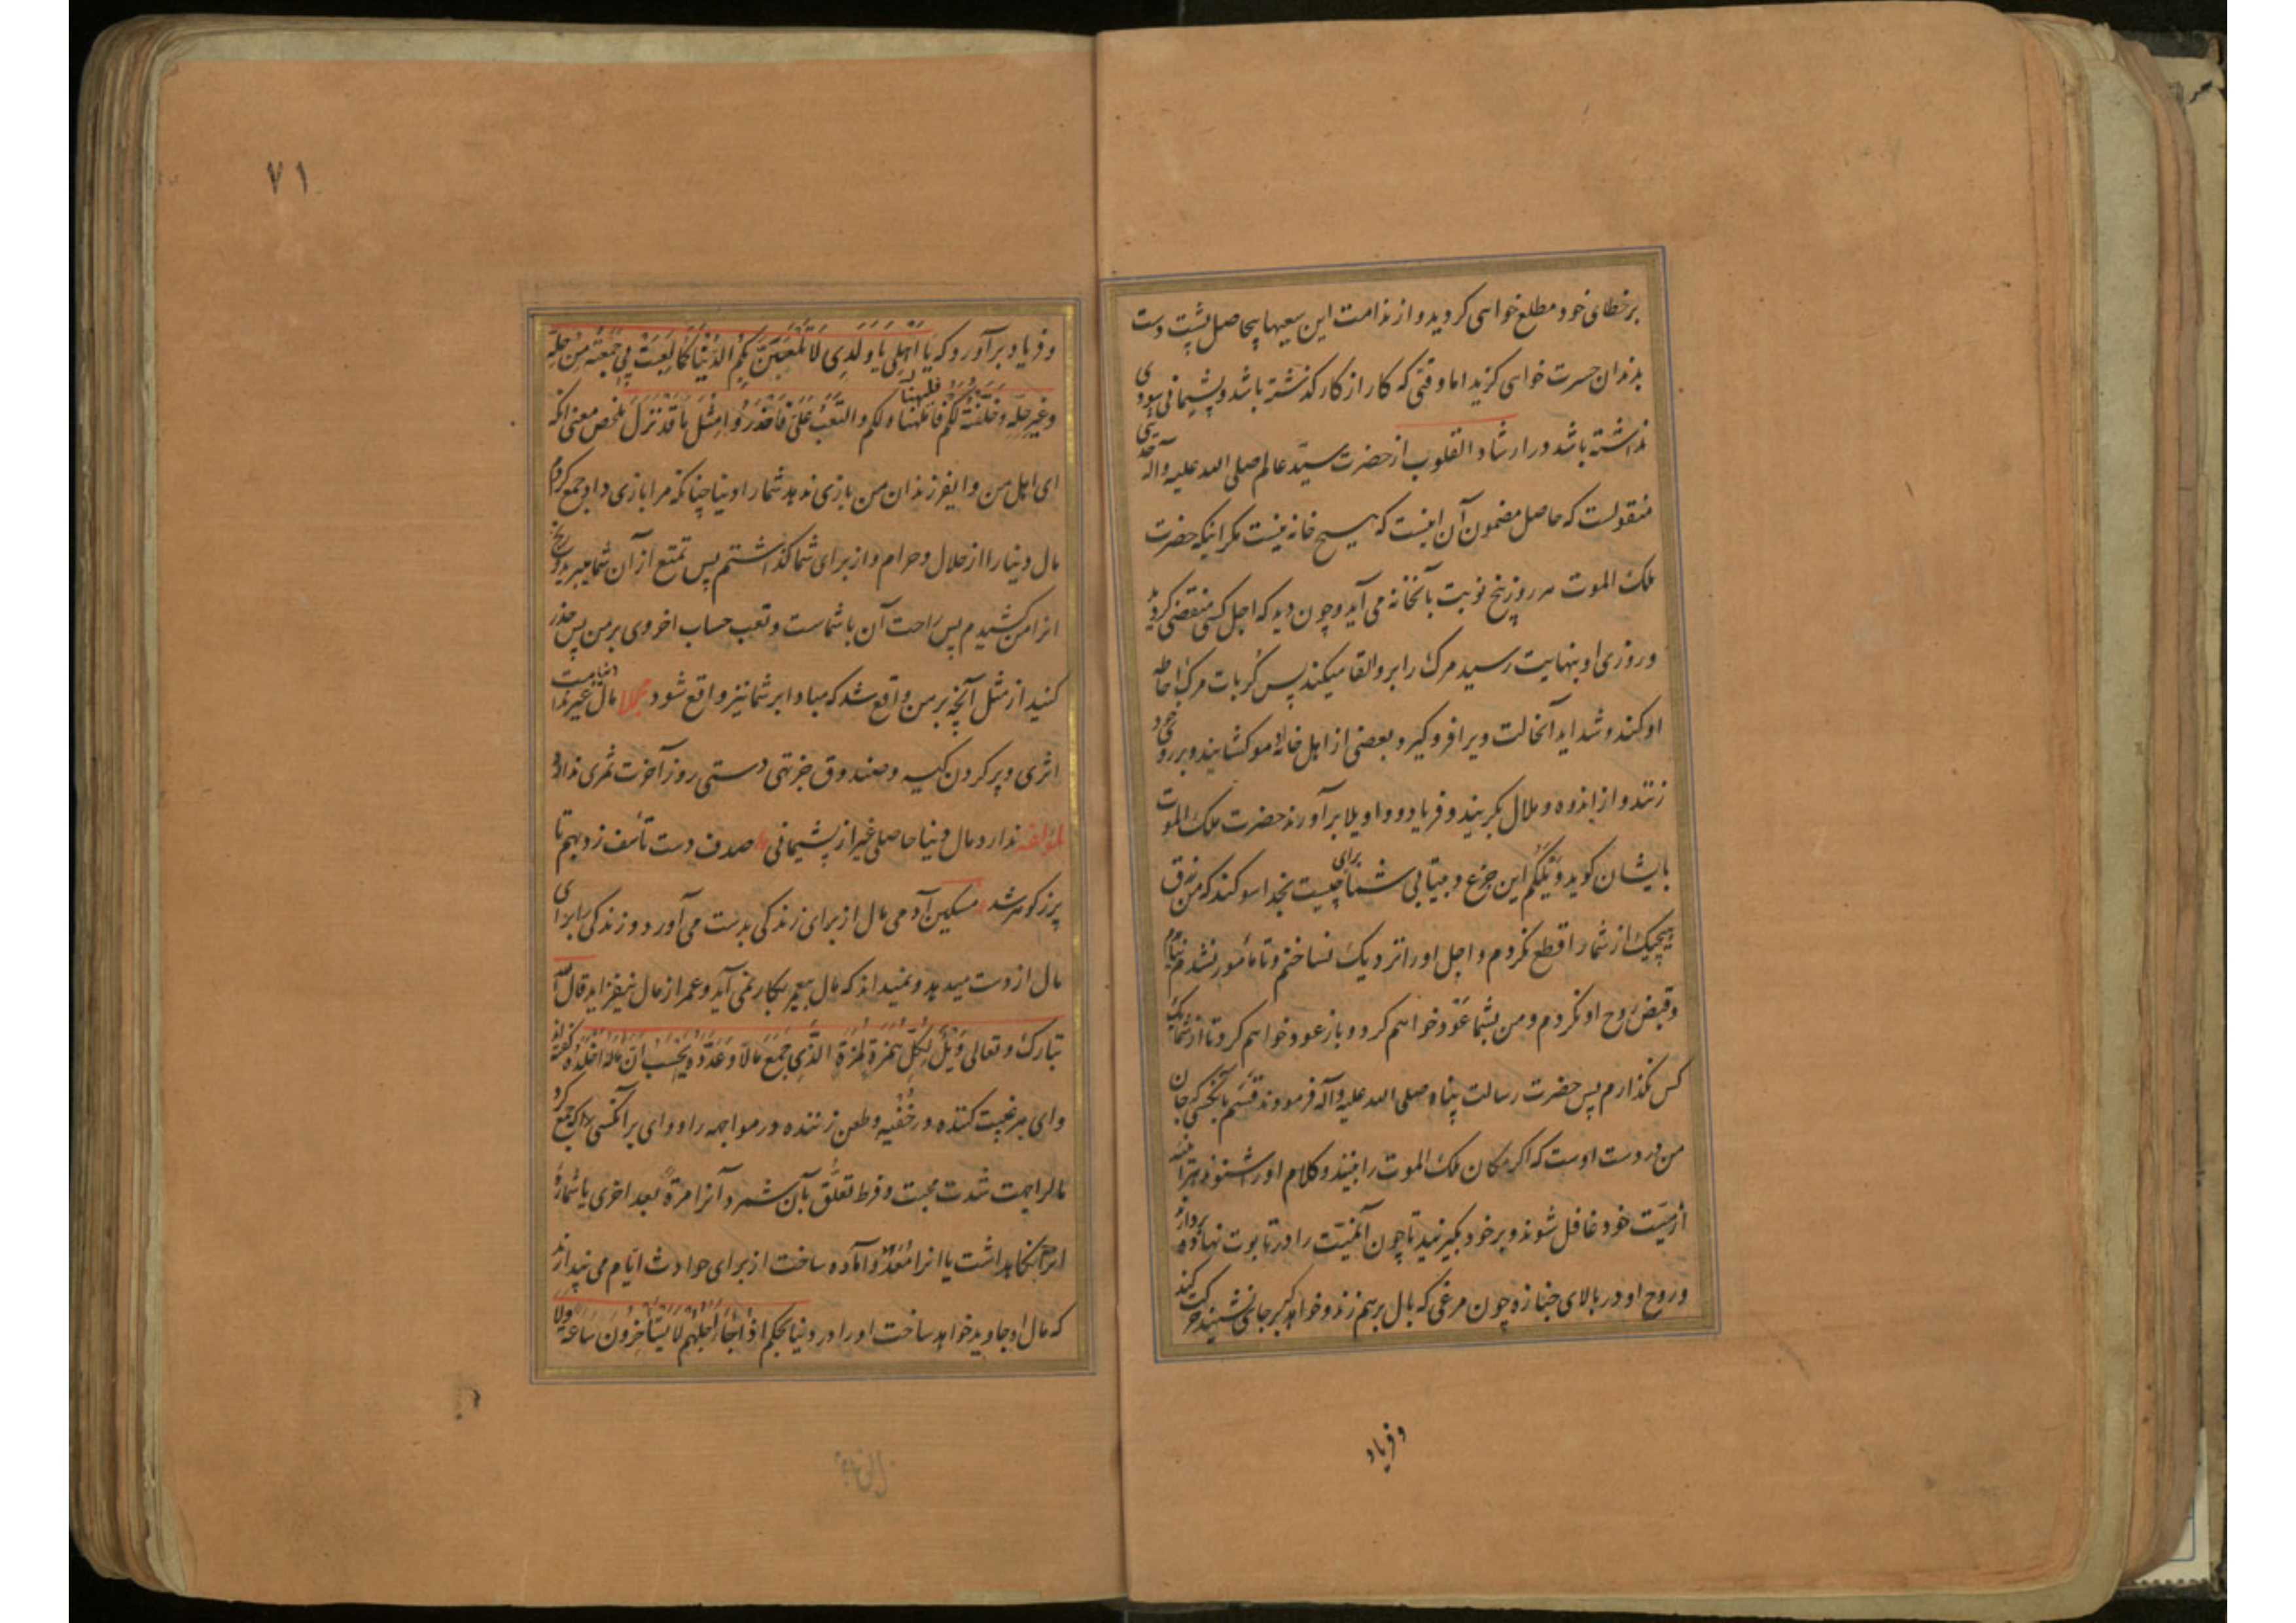 بر خطای خود مطلع خواهی کردید و از ندامت این سعیهای بیحاصل پشت دست
بدندان حسرت خواهی کزید اما وقتی که کار از کار کذشته باشد و پشیمانی سودی
نداشته باشد در ارشاد القلوب از حضرت سید عالم صلی الله علیه وآله حدیثی
منقولست که حاصل مضمون آن اینست که هیچ خانه نیست مکر اینکه حضرت
ملک الموت هر روز پنج نوبت بآنخانه می آید و چون دید که اجل کسی منقضی کردید
و روزی او بنهایت رسید مرک را برو القا میکند پس کربات مرک احاطه
او کند و شداید آنحالت ویرا فرو کیرد و بعضی از اهل خانه او مو کشایند و بر روی خود
زنند و از اندوه و ملال بکریند و فریاد و واویلا برآورند حضرت ملک الموت
بایشان کوید وَیْلَکُم این جزع و بیتابی شما برای چیست بخدا سوکند که من رزق
هیچیک از شما را قطع نکردم و اجل او را نزدیک نساختم و تا مأمور نشدم نیامدم
و قبض روح او نکردم و من بشما عَوْد خواهم کرد و باز عود خواهم کرد تا از شما یک
کس نکذارم پس حضرت رسالت پناه صلی الله علیه وآله فرمودند قسم بآنکسی که جان
من در دست اوست که اکر مکان ملک الموت را بینند و کلام او را شنوند هرآینه
از میّت خود غافل شوند و بر خود بکریند تا چون آنمیّت را در تابوت نهاده بردارند
و روح او در بالای جنازه چون مرغی که بال بر هم زند و خواهد که بر جائی نشیند حرکت کند
و فریاد
۷۱
و فریاد برآورد که یَا اَهْلِی یَا وَلَدِی لَا تَلْعَبَنَّ بِکُمُ الدُّنْیَا کَمَا لَعِبَتْ بِی جَمَعْتُهُ مِنْ حِلِّهِ
وَغَیْرِ حِلِّهِ وَخَلَّفْتُهُ لَکُمْ فَالْمَهْنَأُ لَکُم وَالتَّعَبُ عَلَیَّ فَاحْذَرُوا مِثْلَ مَا قَدْ نَزَلَ ملخص معنی آنکه
ای اهل من و ایفرزندان من بازی ندهد شما را دنیا چنانکه مرا بازی داد جمع کردم
مال دنیا را از حلال و حرام و از برای شما کذاشتم پس تمتع از آن شما میبرید و رنج
آنرا من کشیدم پس راحت آن با شماست و تعب حساب اخروی بر من پس حذر
کنید از مثل آنچه بر من واقع شد که مبادا بر شما نیز واقع شود مجملا مال دنیا غیر ندامت
اثری و پر کردن کیسه و صندوق جز تهی دستی روز آخرت ثمری ندارد
لمؤلفه ندارد مال دنیا حاصلی غیر از پشیمانی صدف دست تأسف زد بهم تا
پر ز کوهر شد مسکین آدمی مال از برای زندکی بدست می آورد و زندکی را برای
مال از دست میدهد و نمیداند که مال بیعمر بکار نمی آید و عمر از مال نیفزاید قال الله
تبارک و تعالی وَیْلٌ لِکُلِّ هُمَزَةٍ لُمَزَةٍ الَّذِی جَمَعَ مَالًا وَعَدَّدَهُ یَحْسَبُ اَنَّ مَالَهُ اَخْلَدَهُ کفته اند
وای هر غیبت کننده در خُفْیه و طعن زننده در مواجهه را و وای بر آنکسی را که جمع کرد
مالرا بجهت شدت محبت و فرط تعلّق بآن شمرد آنرا مرةً بعد اخری یا شماره
آنرا نکاهداشت یا آنرا مُعَدّ و آماده ساخت از برای حوادث ایّام می پندارد
که مال او جاوید خواهد ساخت او را در دنیا بحکم اِذَا جَاءَ اَجَلُهُمْ لَا یَسْتَأْخِرُونَ سَاعَةً وَلَا